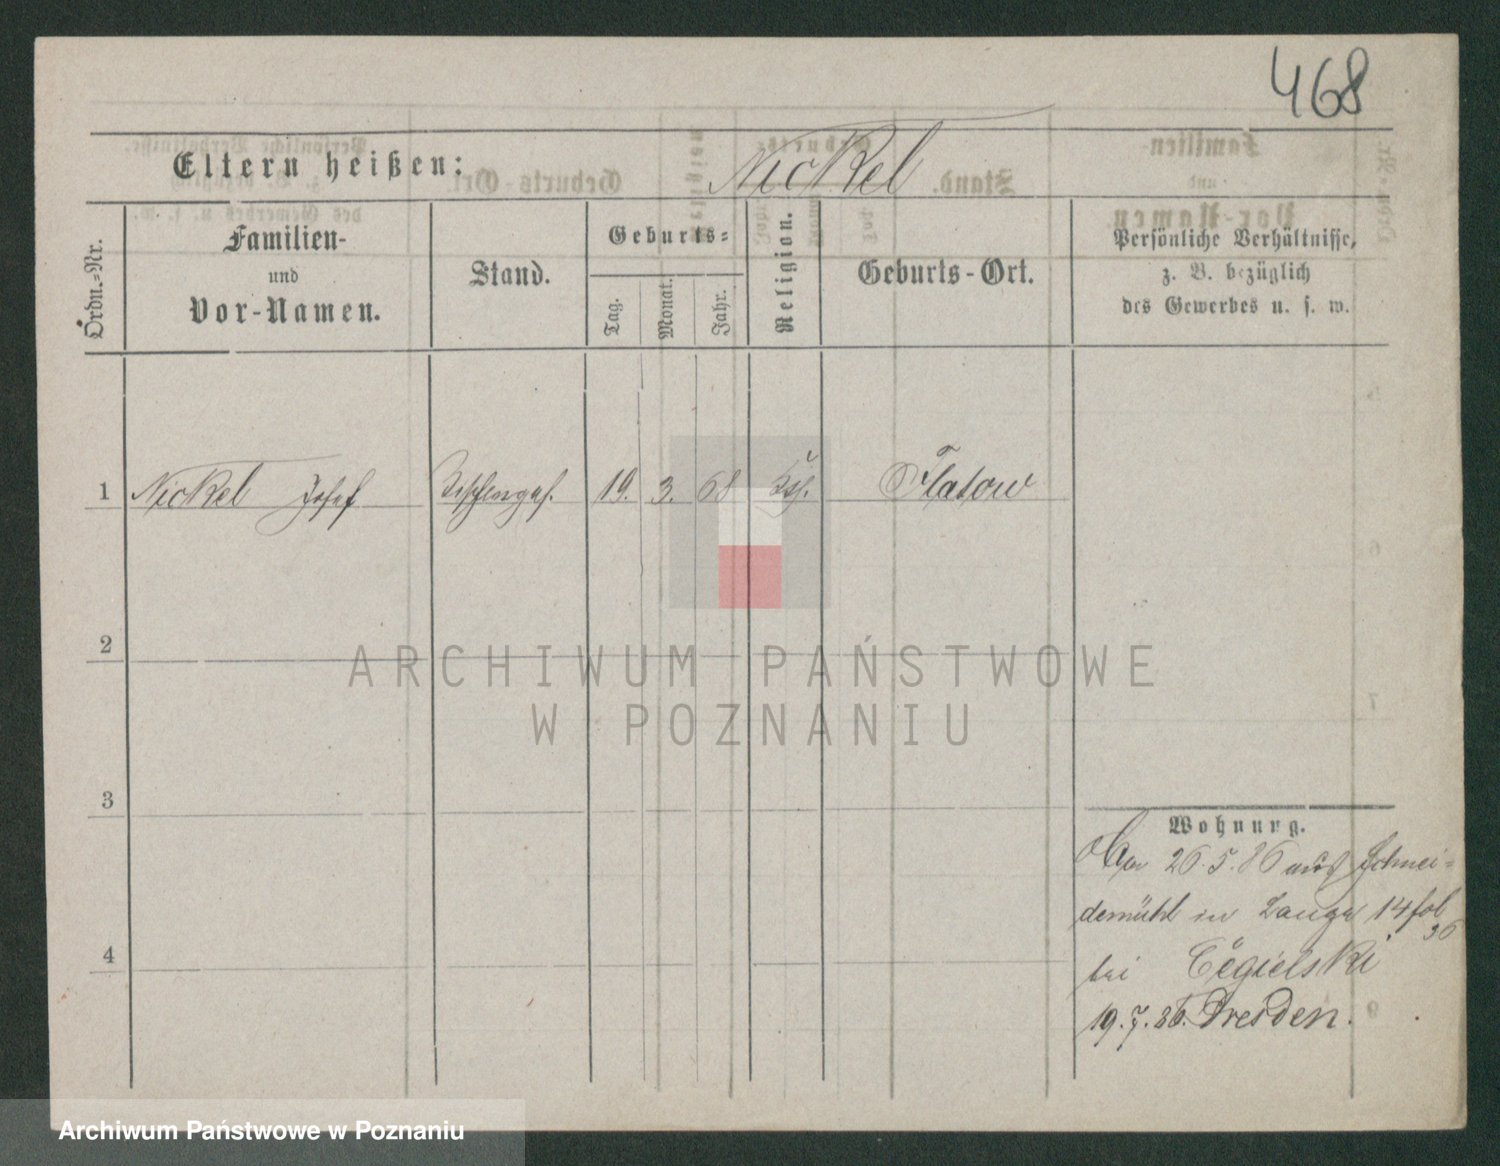 468
Eltern heißen: Nickel
Ordn.-Nr.
Familien-
und
Vor-Namen.
Stand.
Geburts-
Tag.
Monat.
Jahr.
Religion.
Geburts-Ort.
Persönliche Verhältnisse,
z. B. bezüglich
des Gewerbes u. s. w.
1 Nickel Josef 19. 3. 68 Flatow
2
3
4
Wohnung.
26.5.86 aus Schnei-
demühl in Lange 14 fol
36
bei Cegielski
19.7.86. Dresden.
ARCHIWUM PAŃSTWOWE
W POZNANIU
Archiwum Państwowe w Poznaniu